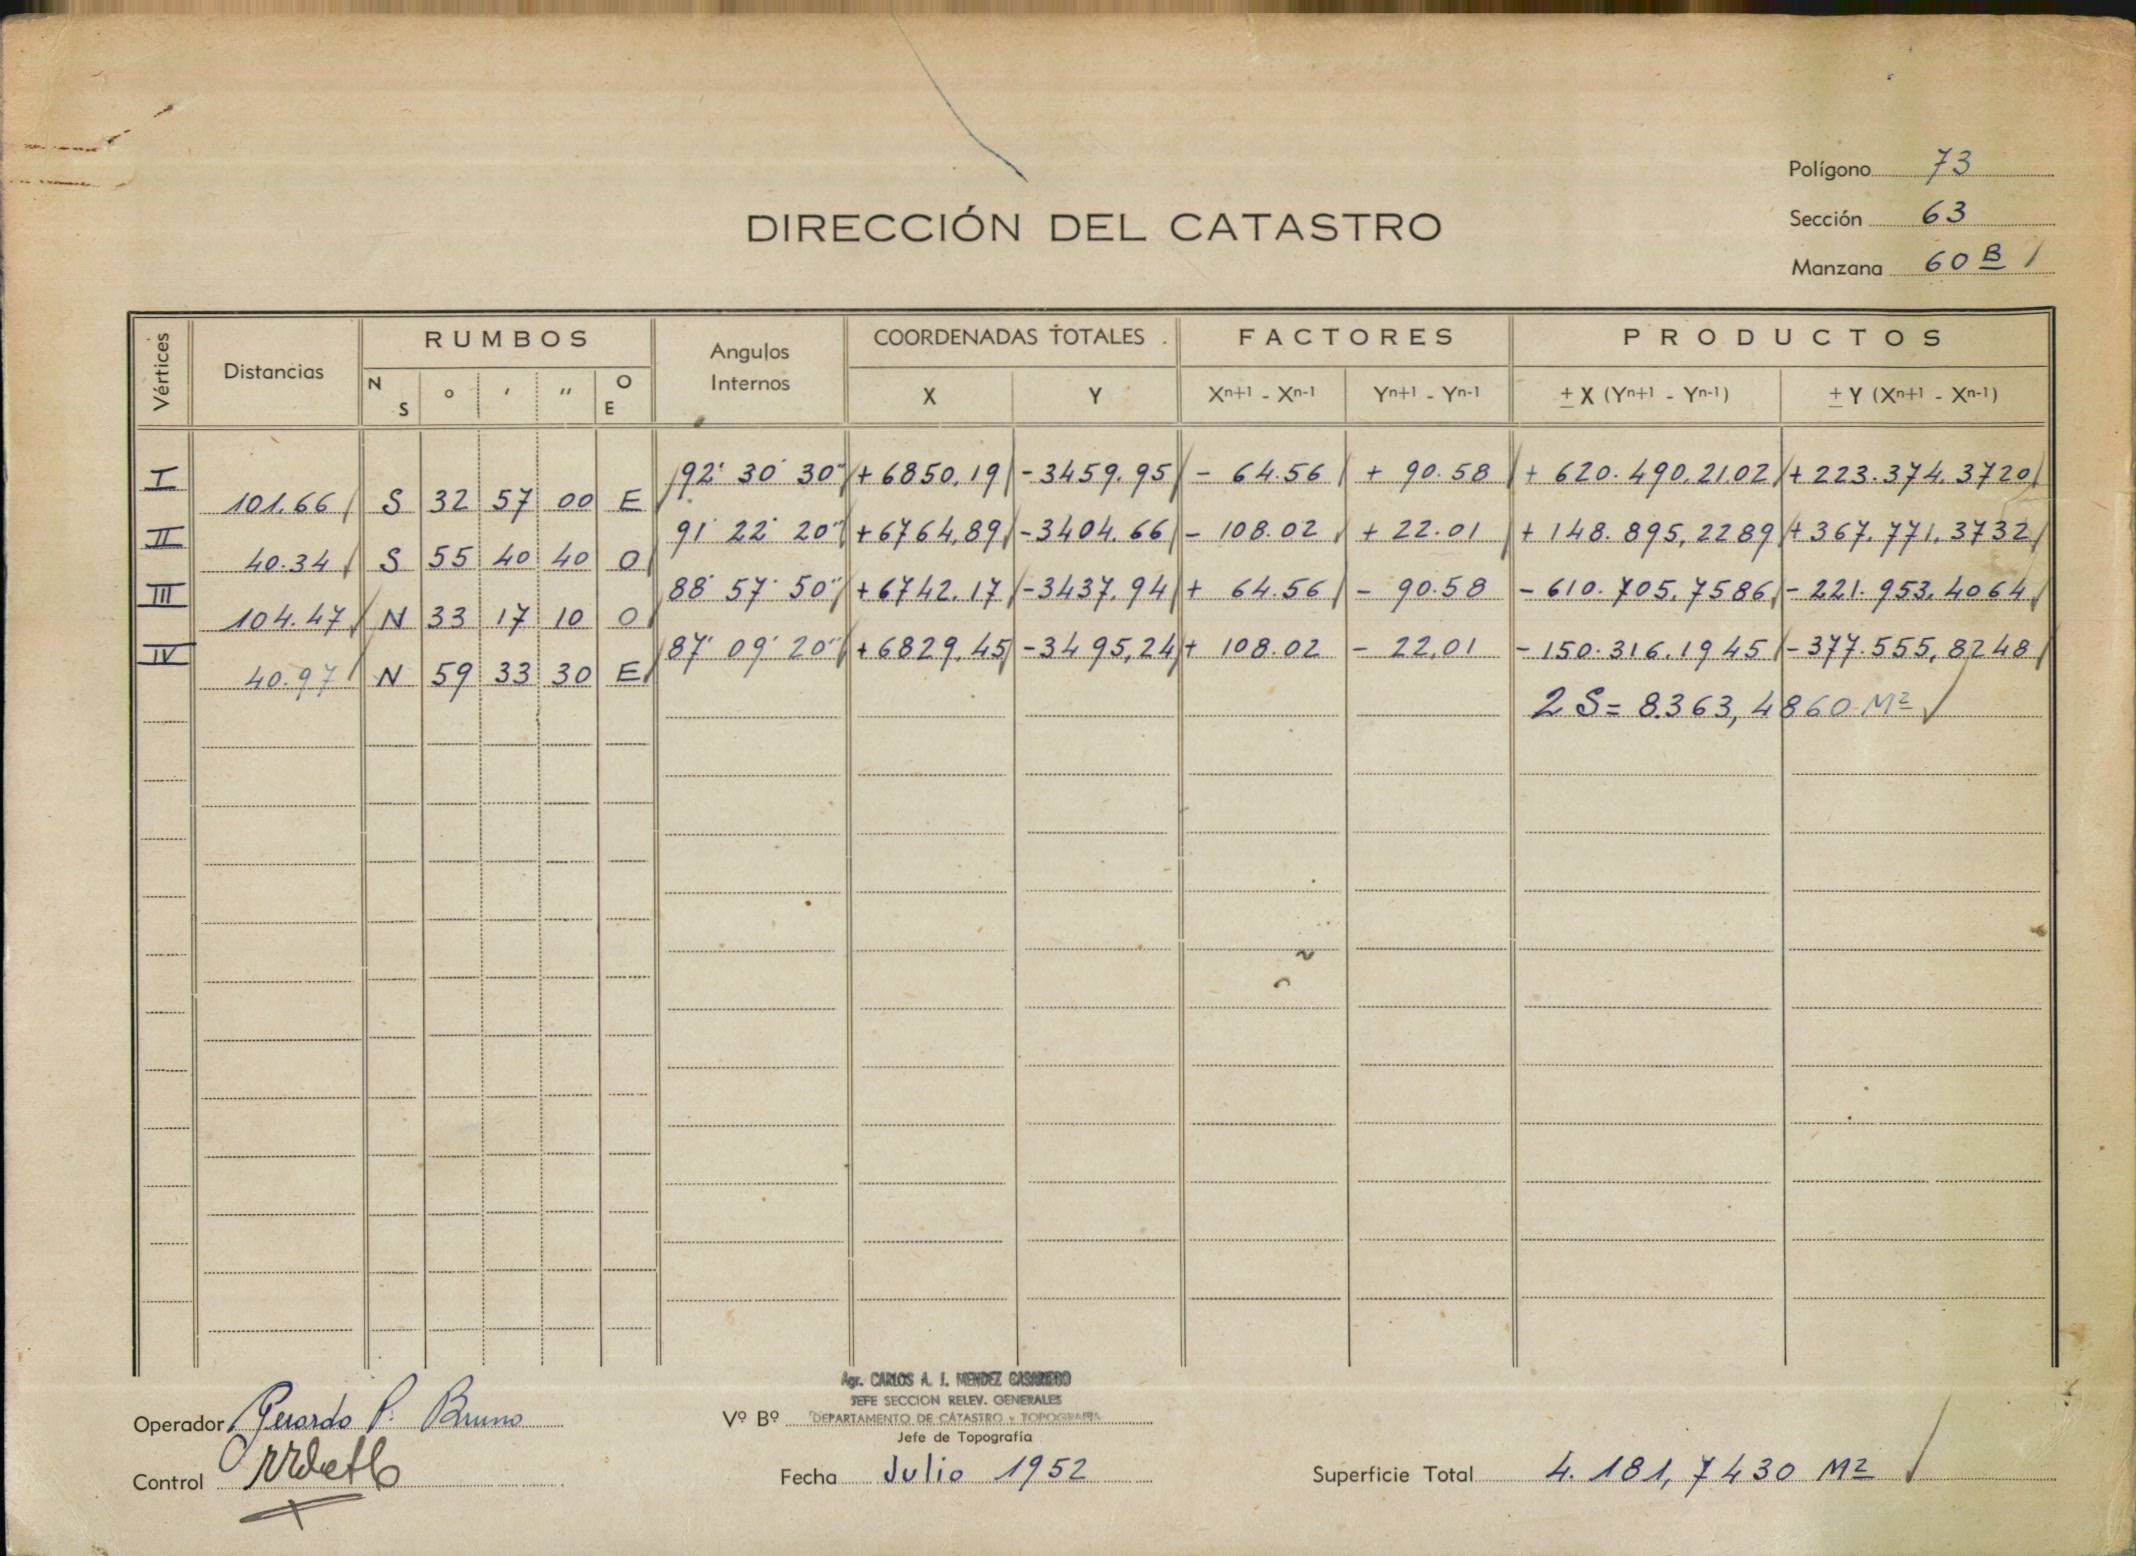 Polígono 73
DIRECCIÓN DEL CATASTRO
Sección 63
Manzana 60 B
Vértices Distancias RUMBOS Angulos Internos COORDENADAS TOTALES FACTORES PRODUCTOS
N S ° ' " O E X Y Xn+1 - Xn-1 Yn+1 - Yn-1 ± X (Yn+1 - Yn-1) ± Y (Xn+1 - Xn-1)
I 92° 30' 30" +6850,19 -3459,95 - 64.56 + 90.58 + 620.490,2102 +223.374,3720
101.66 S 32 57 00 E
II 91° 22' 20" +6764,89 -3404.66 - 108.02 + 22.01 + 148.895,2289 +367.771,3732
40.34 S 55 40 40 O
III 88° 57' 50" +6742,17 -3437,94 + 64.56 - 90.58 - 610.705,7586 - 221.953,4064
104.47 N 33 17 10 O
IV 87° 09' 20" +6829,45 -3495,24 + 108.02 - 22,01 - 150.316,1945 - 377.555,8248
40.97 N 59 33 30 E
2 S = 8.363,4860 M²
Agr. CARLOS A. J. MENDEZ CASARIEGO
JEFE SECCION RELEV. GENERALES
Operador Gerardo P. Bruno Vº Bº DEPARTAMENTO DE CATASTRO y TOPOGRAFIA
Jefe de Topografía
Control Fecha Julio 1952 Superficie Total 4.181,7430 M²